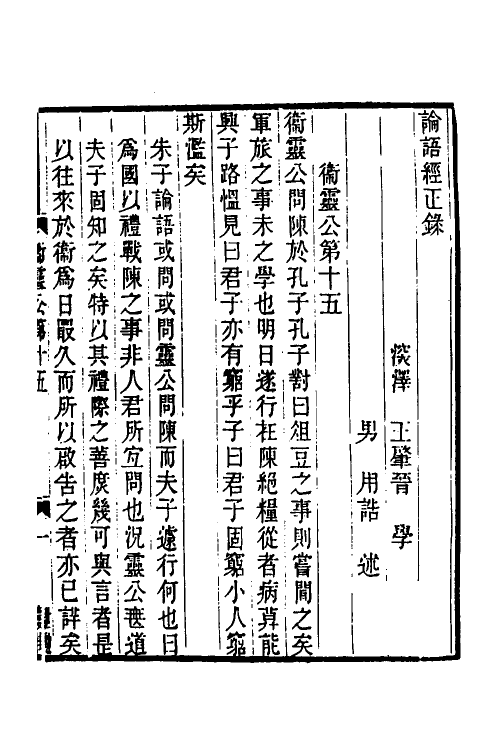 論語經正錄
淡澤 王肇晉 學
男 用誥 述
衞靈公第十五
衞靈公問陳於孔子孔子對曰俎豆之事則嘗聞之矣
軍旅之事未之學也明日遂行在陳絕糧從者病莫能
興子路慍見曰君子亦有窮乎子曰君子固窮小人窮
斯濫矣
朱子論語或問或問靈公問陳而夫子遽行何也曰
爲國以禮戰陳之事非人君所宜問也況靈公無道
夫子固知之矣特以其禮際之善庶幾可與言者是
以往來於衞爲日最久而所以啟吿之者亦已詳矣
衞靈公第十五
一